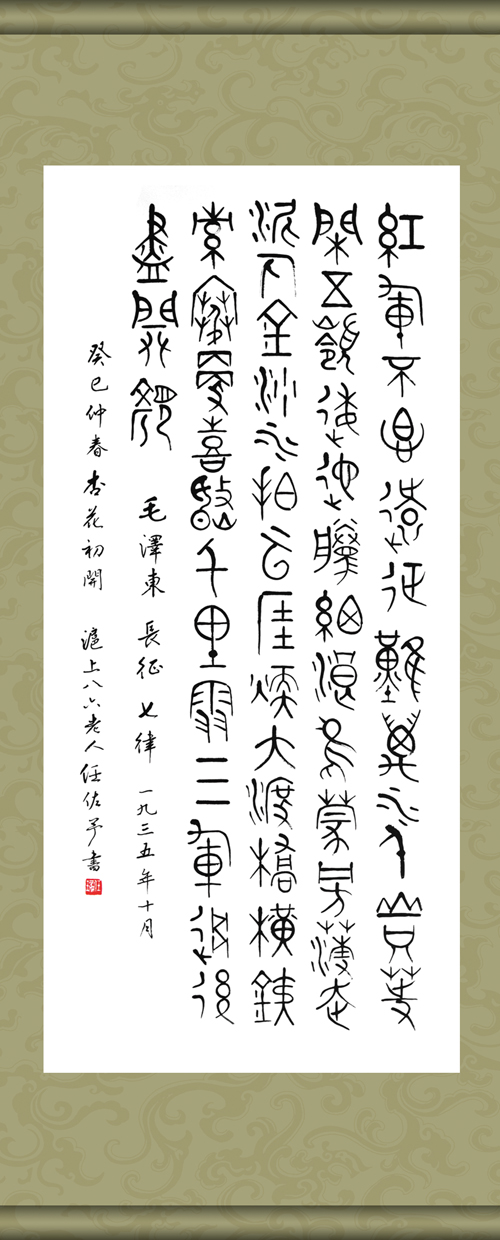 紅軍不怕遠征難萬水千山只等
閑五嶺逶迤騰細浪烏蒙旁薄走
泥丸金沙水拍云厓煖大渡橋橫銕
索寒更喜岷山千里雪三軍過後
盡開顏 毛澤東 長征 七律 一九三五年十月
癸巳仲春杏花初開 滬上八六老人任佐予書